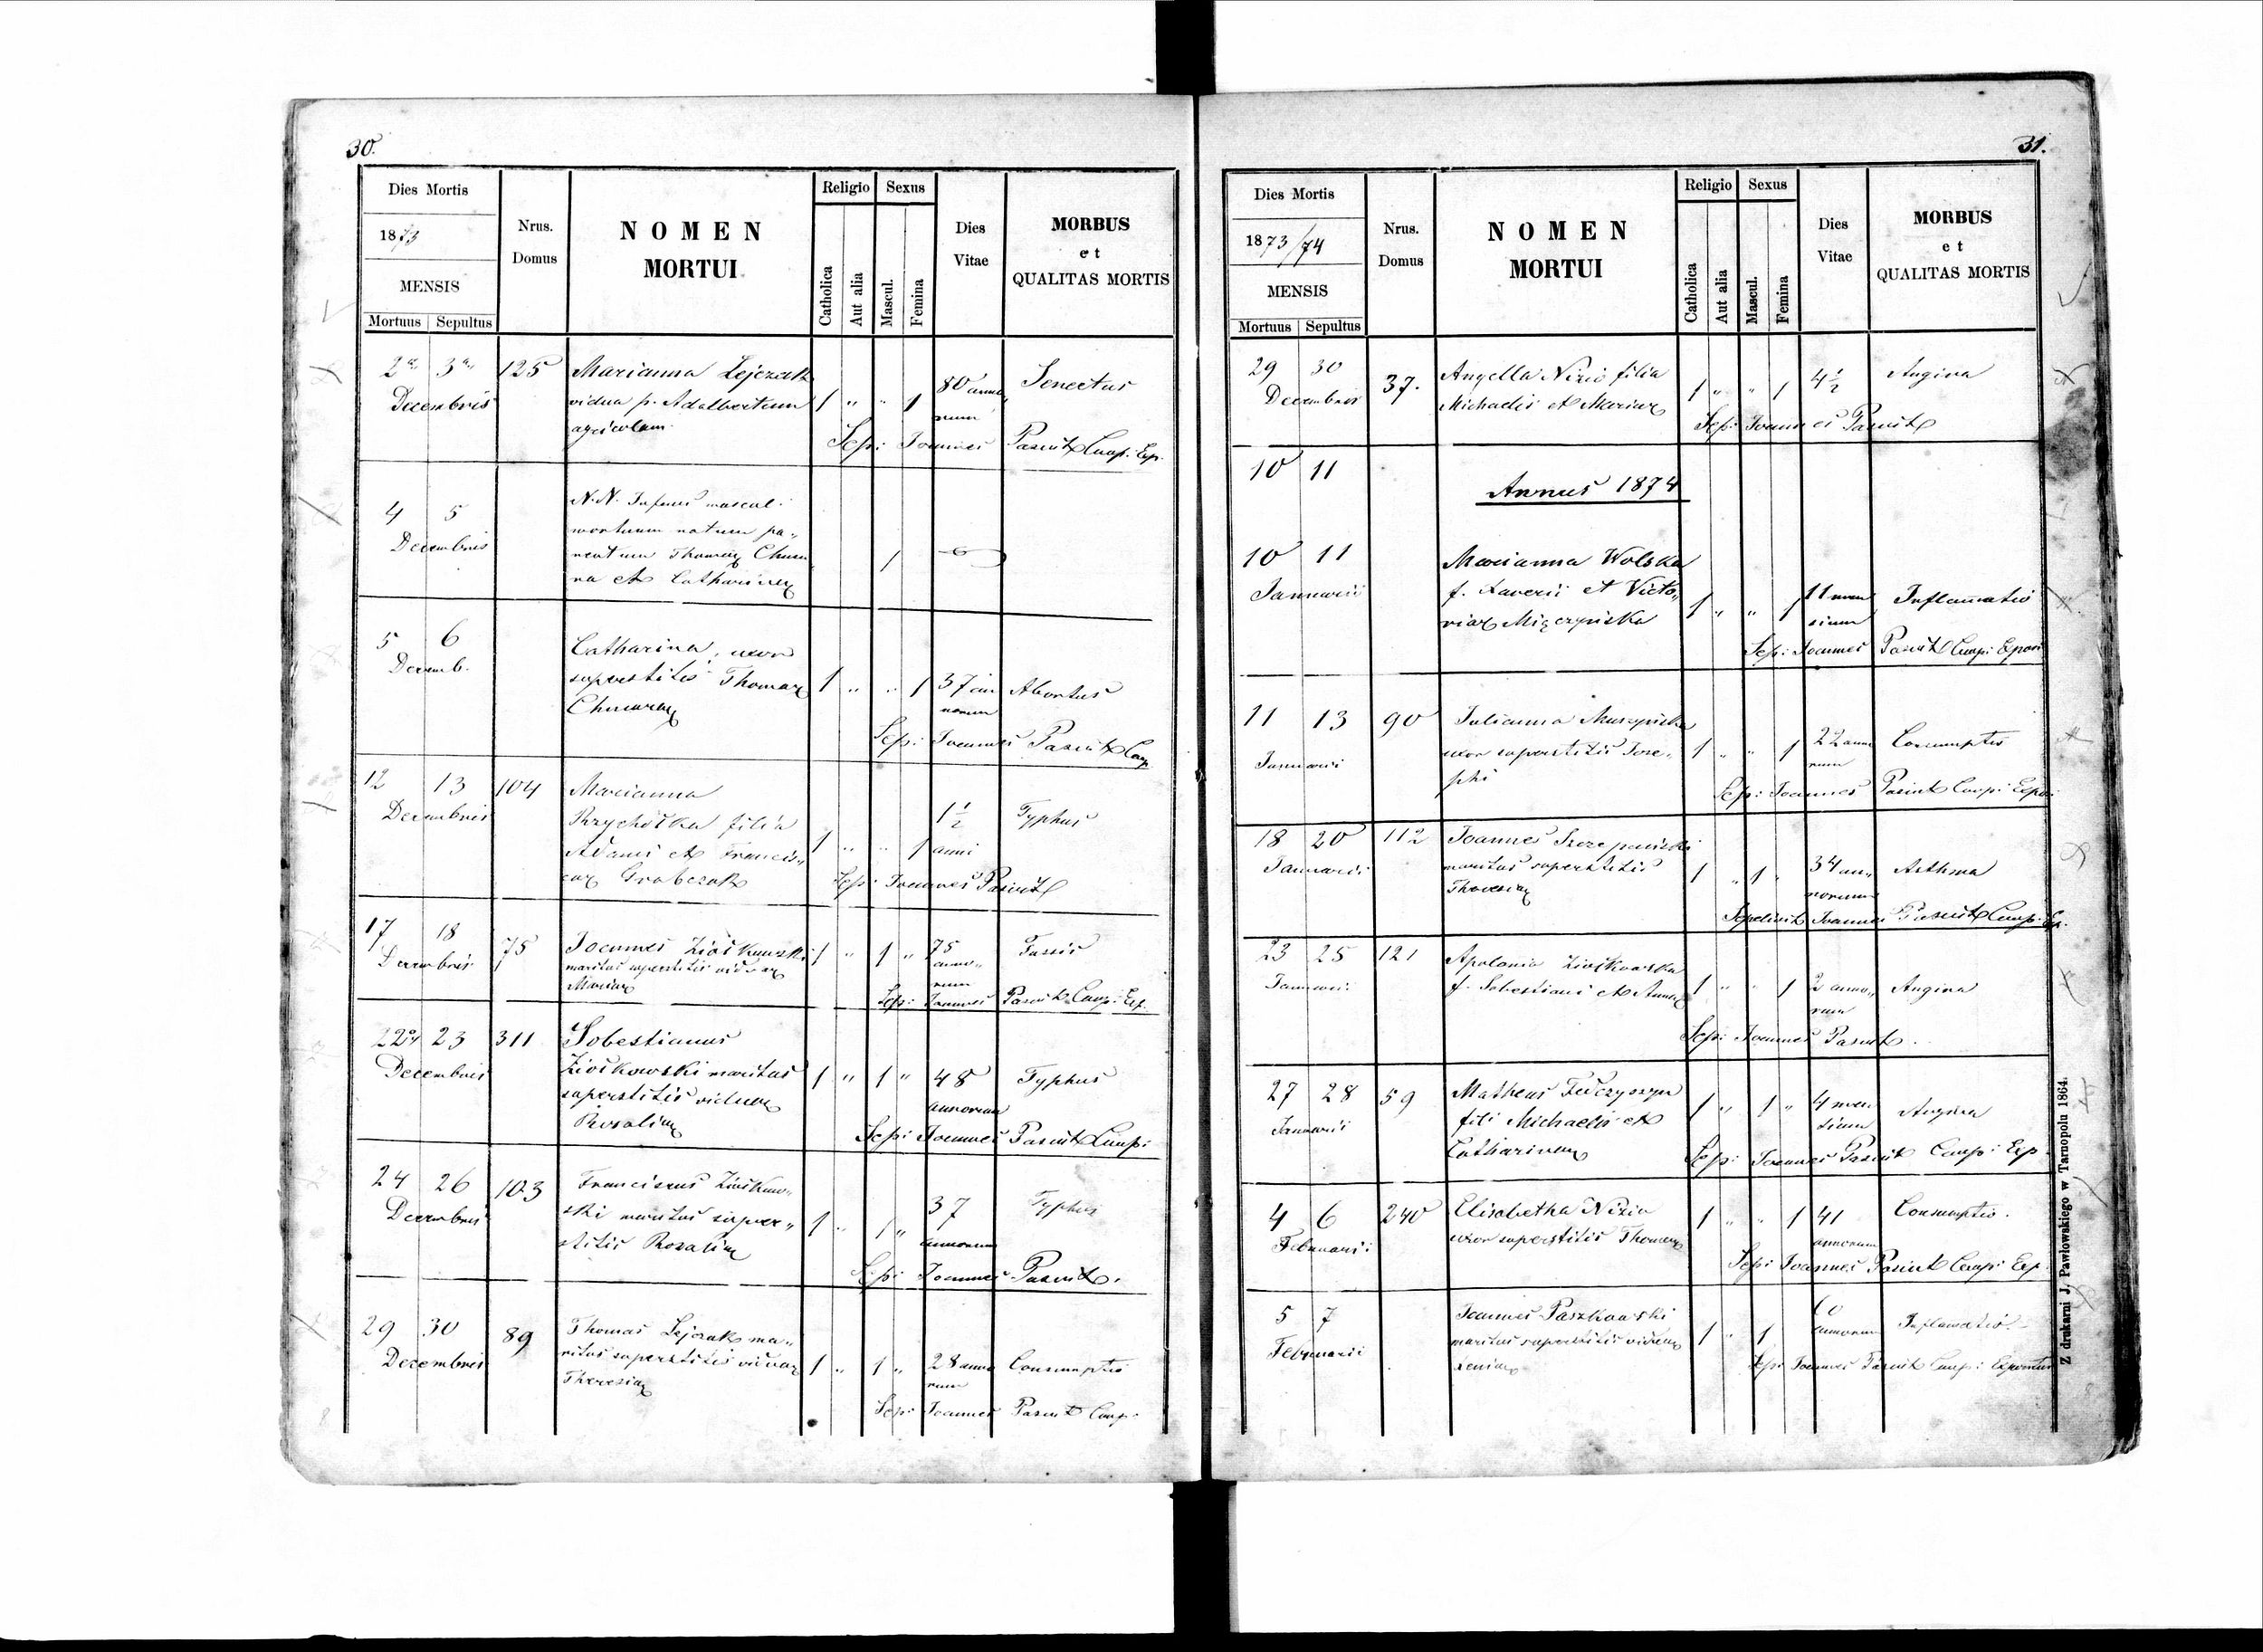 30.
Dies Mortis
1873
MENSIS
Mortuus Sepultus
Nrus. Domus
NOMEN
MORTUI
Religio
Catholica
Aut alia
Sexus
Mascul.
Femina
Dies
Vitae
MORBUS
et
QUALITAS MORTIS
2 3 125 Marianna Lejczak
Decembris vidua p. Adalbertum 1 " " 1 80 anno
agricolam rum Senectus
Sep: Joannes Pasiut Coop: Exp.
4 5 N. N. Infans mascul:
Decembris mortuum natum pa„
rentum Thomae
na et Catharinae 1
5 6 Catharina, uxor
Decemb. superstitis Thomae 1 " " 1 37 an Abortus
norum
Sep: Joannes Pasiut Coop
12 13 104 Marianna
Decembris filia 1 1/2 Typhus
Adami et Francis„ 1 " " 1 anni
cae Grabczak Sep: Joannes Pasiut
17 18 75 Joannes Ziółkowski 1 " 1 " 75 Tussis
Decembris maritus superstitis viduae anno„
Mariae rum
Sep: Joannes Pasiut Coop: Exp.
22 23 311 Sobestianus
Decembris Ziółkowski maritus 1 " 1 " 48 Typhus
superstitis viduae annorum
Rosaliae Sep: Joannes Pasiut Coop:
24 26 103 Franciscus Ziółkow„
Decembris ski maritus super„ 1 " 1 " 37 Typhus
stitis Rosaliae annorum
Sep: Joannes Pasiut.
29 30 89 Thomas Lejczak ma„
Decembris ritus superstitis viduae 1 " 1 " 28 anno Consumptio
Theresiae rum
Sep: Joannes Pasiut Coop:
31.
Dies Mortis
1873/74
MENSIS
Mortuus Sepultus
Nrus. Domus
NOMEN
MORTUI
Religio
Catholica
Aut alia
Sexus
Mascul.
Femina
Dies
Vitae
MORBUS
et
QUALITAS MORTIS
29 30 37. Angella Nizio filia 4 1/2 Angina
Decembris Michaelis et Mariae 1 " " 1
Sep: Joannes Pasiut
10 11
Annus 1874
10 11 Marianna Wolska
Januarii f. Xaverii et Victo„ 1 " " 1 11 men Inflamatio
riae sium
Sep: Joannes Pasiut Coop: Expos
11 13 90 Julianna
Januarii uxor superstitis Jose„ 1 " " 1 22 anno Consumptio
phi rum
Sep: Joannes Pasiut Coop: Expos:
18 20 112 Joannes Szczepański
Januarii maritus superstitis 1 " 1 " 34 an„ Asthma
Theresiae norum
Sepelivit Joannes Pasiut Coop: Ex.
23 25 121 Apolonia Ziółkowska
Januarii f. Sebestiani et Annae 1 " " 1 2 anno„ Angina
rum
Sep: Joannes Pasiut.
27 28 59 Matheus Fedczyszyn
Januarii fili Michaelis et 1 " 1 " 4 men Angina
Catharinae sium
Sep: Joannes Pasiut Coop: Exp
4 6 240 Elisabetha Nizio 1 " " 1 41 Consumptio.
Februarii uxor superstitis Thomae annorum
Sep: Joannes Pasiut Coop: Exp
5 7 Joannes Paszkowski Inflamatio.
Februarii maritus superstitis viduae 1 " 1 annorum
Xeniae Sep: Joannes Pasiut Coop: Expositus
Z drukarni J. Pawłowskiego w Tarnopolu 1864.